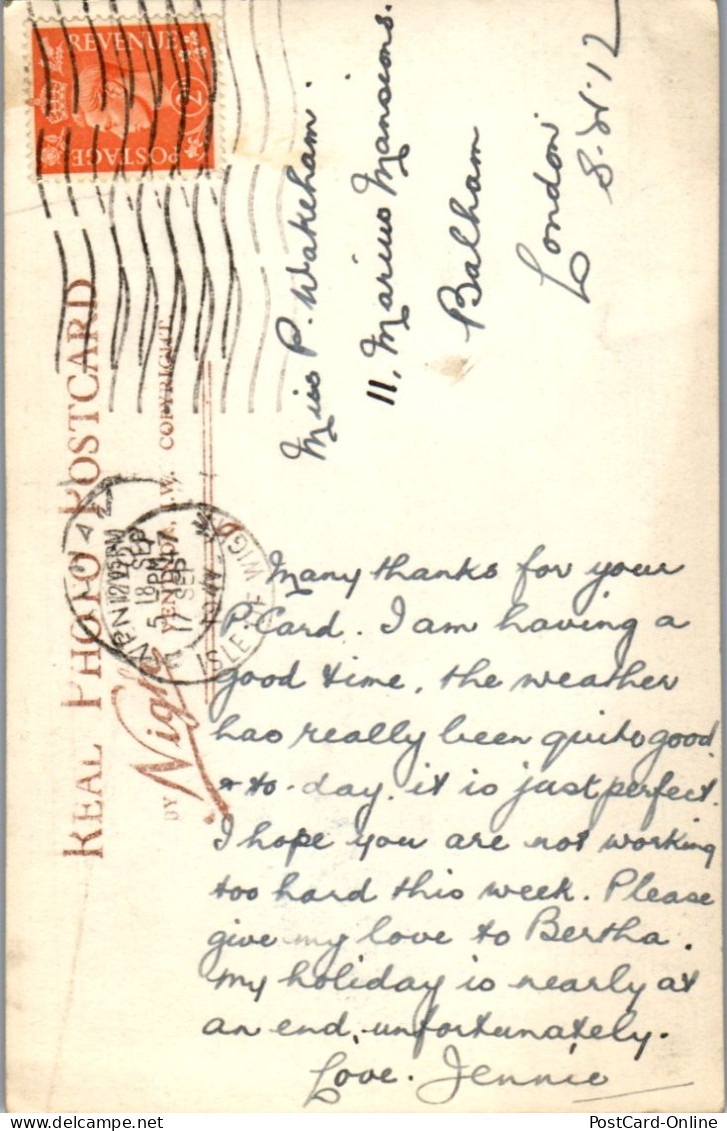 REVENUE
POSTAGE
2D
REAL PHOTO POSTCARD
BY Nigh
VENTNOR, I.W. COPYRIGHT
ISLE OF WIGHT
Miss P. Wakeham.
11, Marius Mansions.
Balham
London
S.W. 12
Many thanks for your
P. Card. I am having a
good time, the weather
has really been quite good
& to-day. it is just perfect.
I hope you are not working
too hard this week. Please
give my love to Bertha.
My holiday is nearly at
an end, unfortunately.
Love. Jennie
PostCard-Online